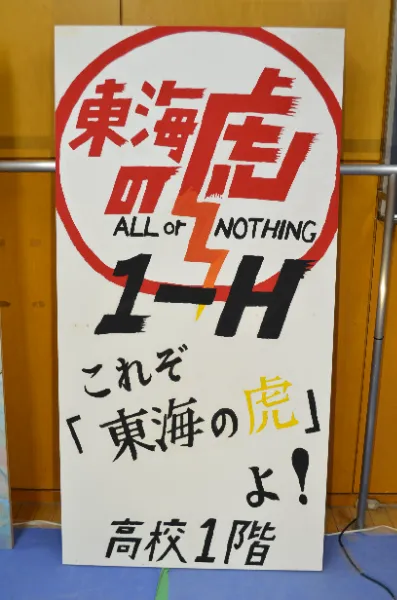 東海の虎
ALL or NOTHING
1-H
これぞ
「東海の虎」
よ!
高校1階